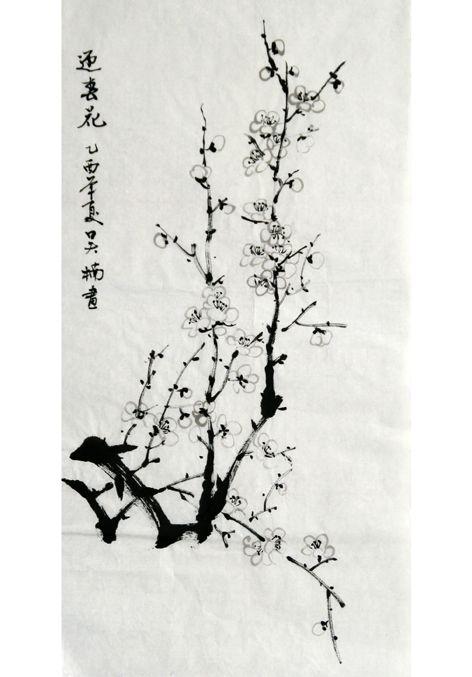 迎春花 乙酉年夏吴楠画